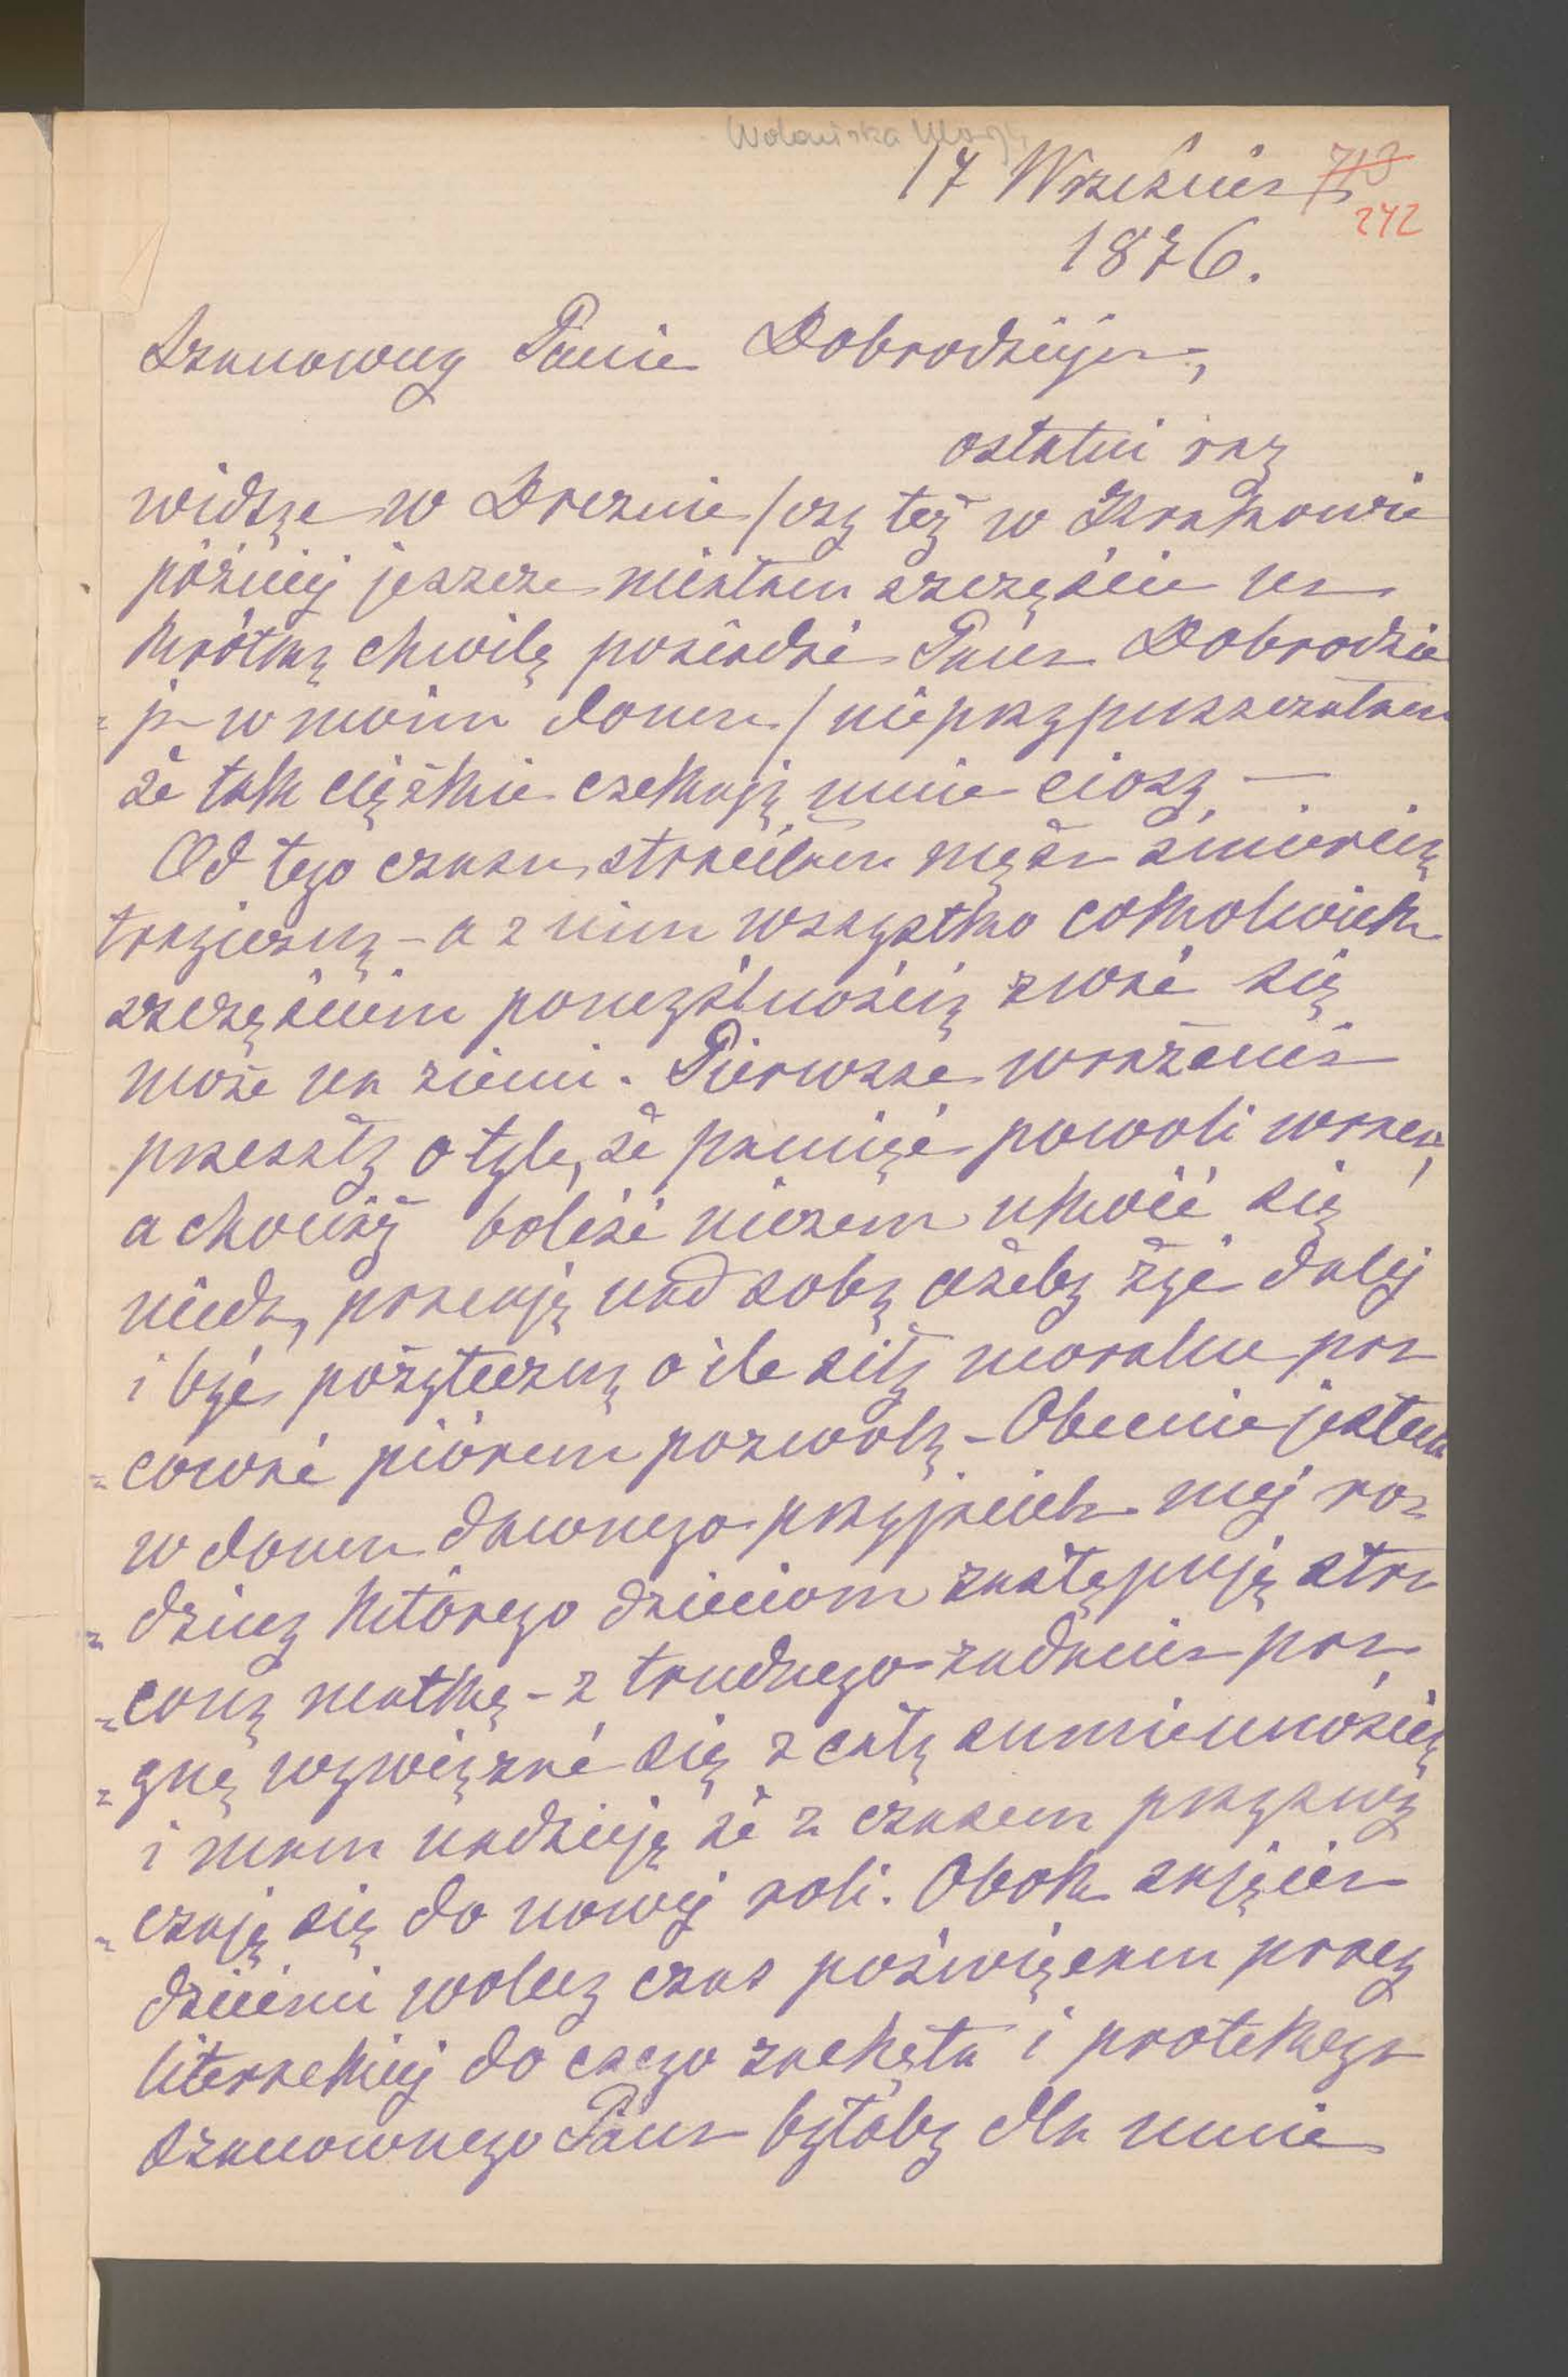 Wolańska
17 Września 713
242
1876.
Szanowny Panie Dobrodzieju,
ostatni raz
widząc w Dreznie /czy też w Krakowie
później jeszcze miałam szczęście na
krótką chwilę posiadać Pana Dobrodzie
=ja w moim domu/ nieprzypuszczałam
że tak ciężkie czekają mnie ciosy —
Od tego czasu straciłam męża śmiercią
tragiczną – a z nim wszystko cokolwiek
szczęściem pomyślnością zwać się
może na ziemi. Pierwsze wrażenia
przeszły o tyle, że pamięć powoli wraca,
a chociaż boleść niczem ukoić się
nieda, pracuję nad sobą ażeby żyć dalej
i być pożyteczną o ile siły moralne pra
=cować piórem pozwolą – Obecnie jestem
w domu dawnego przyjaciela mej ro=
=dziny którego dzieciom zastępuję stra
=coną matkę – z trudnego zadania pra
=gnę wywiązać się z całą sumiennością
i mam nadzieję że z czasem przyzwy
=czaję się do nowej roli. Obok zajęcia
dziećmi wolny czas poświęcam pracy
literackiej do czego zachęta i protekcya
szanownego Pana byłaby dla mnie